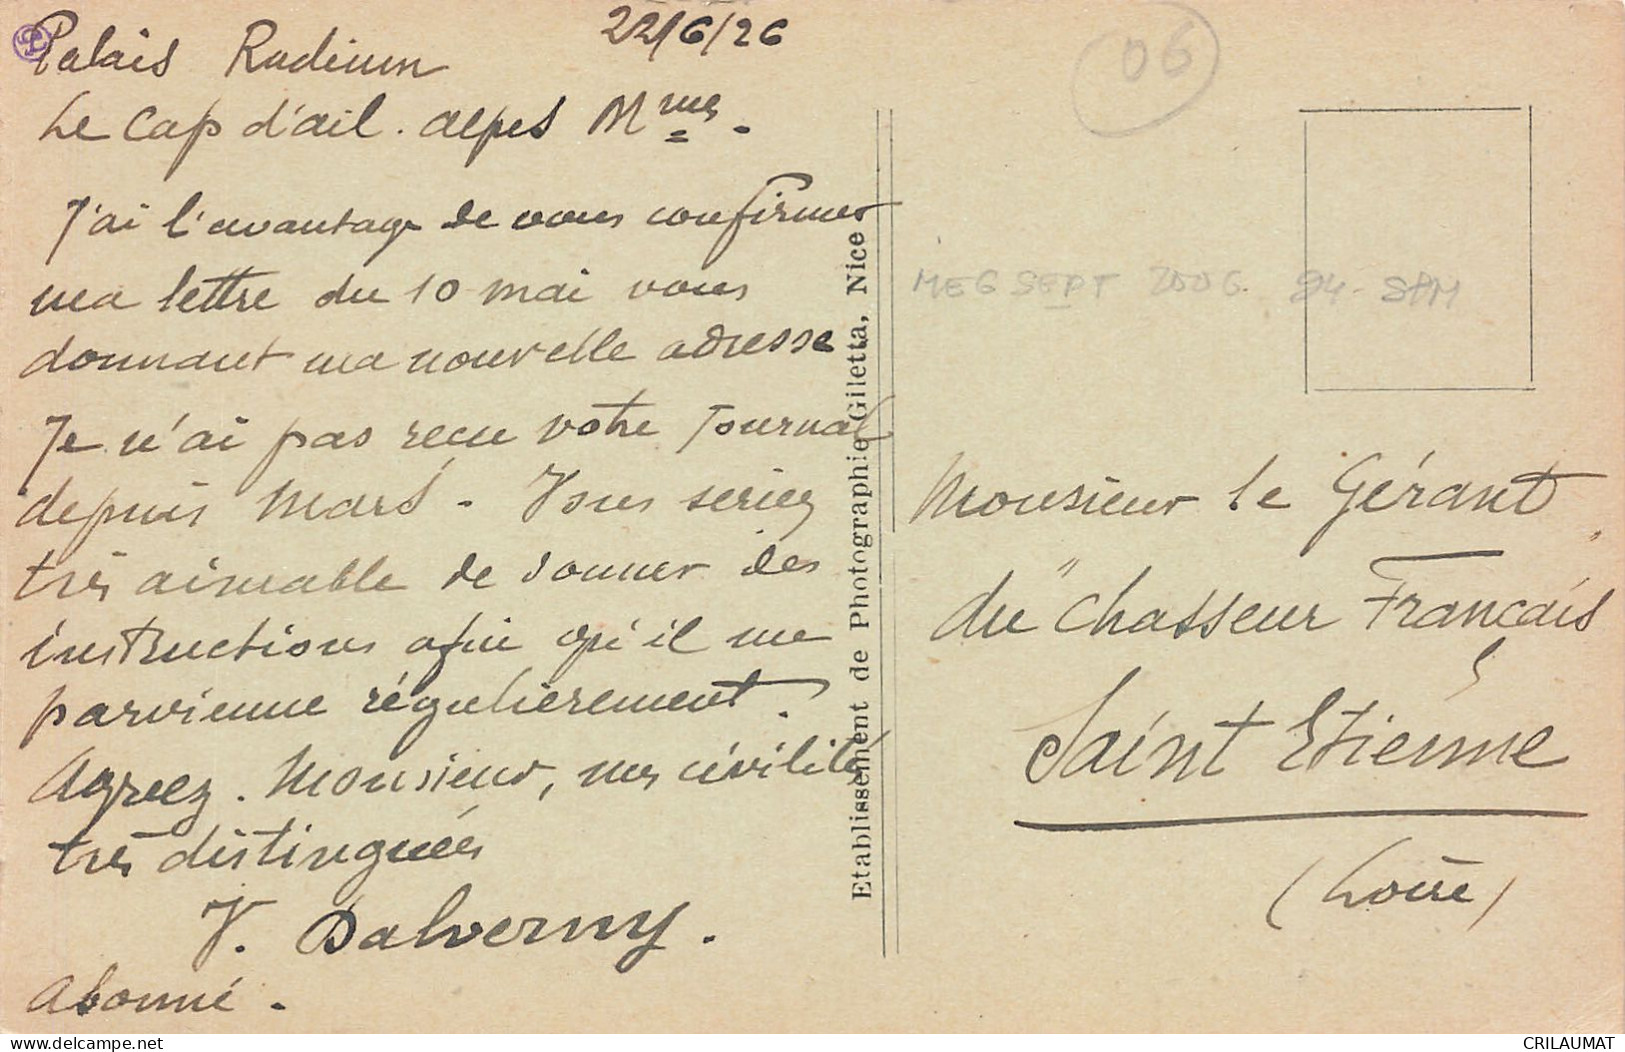 Palais Radium 22/6/26
Le Cap d'ail. alpes Mmes.
J'ai l'avantage de vous confirmer
ma lettre du 10 mai vous
donnant ma nouvelle adresse
Je n'ai pas recu votre Journal
depuis Mars. Vous seriez
très aimable de donner des
instructions afin qu'il me
parvienne régulièrement.
Agreez. Monsieur, mes civilités
très distinguées
V. Dalverny.
Abonné.
Etablissement de Photographie Giletta, Nice
06
MEG SEPT 2006. 94- SPM
Monsieur le Gérant
du "Chasseur Français"
Saint Etienne
(Loire)
delcampe.net
CRILAUMAT